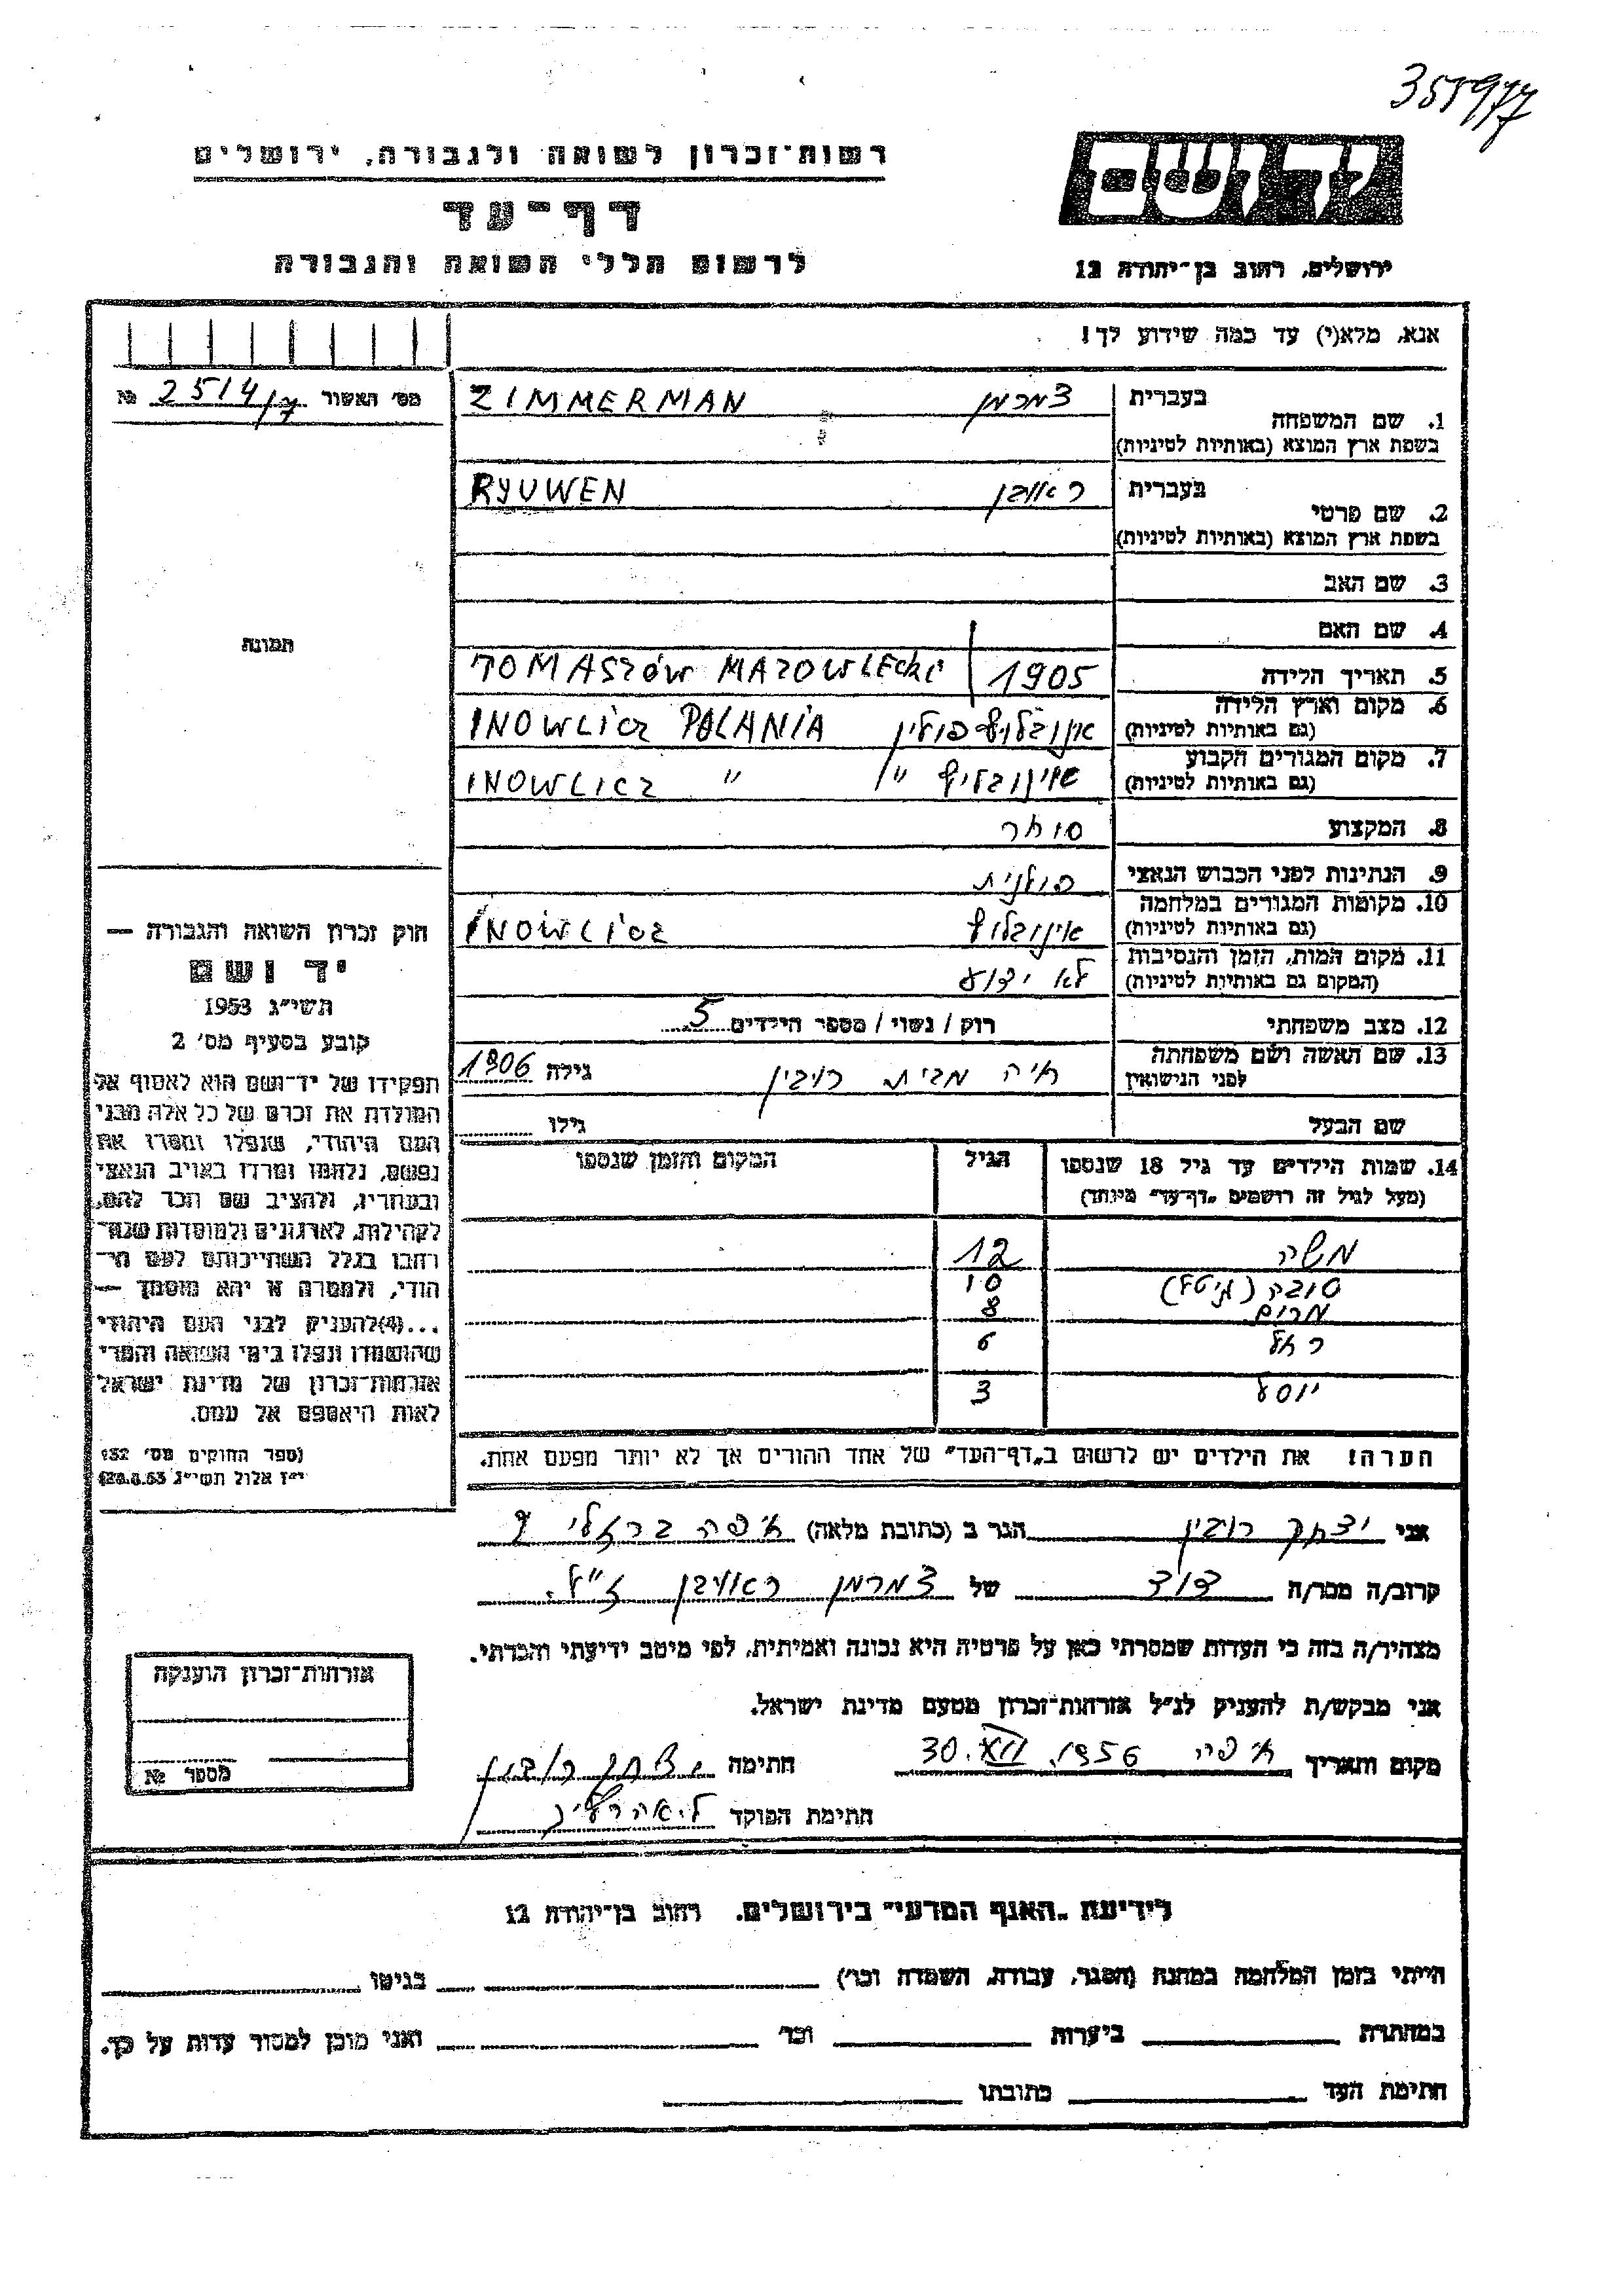 355977
רשות־זכרון לשואה ולגבורה, ירושלים
דף־עד
לרשום חללי השואה והגבורה
יד ושם
ירושלים, רחוב בן־יהודה 12
אנא, מלא(י) עד כמה שידוע לך!
מס׳ האשור 2514/7 №
1. שם המשפחה בעברית צמרמן ZIMMERMAN
בשפת ארץ המוצא (באותיות לטיניות)
2. שם פרטי בעברית ראובן RYUWEN
בשפת ארץ המוצא (באותיות לטיניות)
3. שם האב
4. שם האם
5. תאריך הלידה 1905 TOMASZÓW MAZOWIECKI
6. מקום וארץ הלידה (גם באותיות לטיניות) פולין INOWLICZ POLANIA
7. מקום המגורים הקבוע (גם באותיות לטיניות) " INOWLICZ "
8. המקצוע סוחר
9. הנתינות לפני הכבוש הנאצי פולנית
10. מקומות המגורים במלחמה (גם באותיות לטיניות) INOWLICZ
11. מקום המות, הזמן והנסיבות (המקום גם באותיות לטיניות) לא ידוע
12. מצב משפחתי רוק / נשוי / מספר הילדים 5
13. שם האשה ושם משפחתה לפני הנישואין חיה מבית רובין גילה 1906
שם הבעל גילו
14. שמות הילדים עד גיל 18 שנספו (מעל לגיל זה רושמים „דף־עד" מיוחד) הגיל המקום והזמן שנספו
משה 12
טובה 10
מרים 8
רחל 6
יוסף 3
הערה! את הילדים יש לרשום ב„דף־העד" של אחד ההורים אך לא יותר מפעם אחת.
תמונה
חוק זכרון השואה והגבורה —
יד ושם
תשי״ג 1953
קובע בסעיף מס׳ 2
תפקידו של יד־ושם הוא לאסוף אל
המולדת את זכרם של כל אלה מבני
העם היהודי, שנפלו ומסרו את
נפשם, נלחמו ומרדו באויב הנאצי
ובעוזריו, ולהציב שם וזכר להם,
לקהילות, לארגונים ולמוסדות שנח־
רבו בגלל השתייכותם לעם הי־
הודי, ולמטרה זו יהא מוסמך —
...(4) להעניק לבני העם היהודי
שהושמדו ונפלו בימי השואה והמרי
אזרחות־זכרון של מדינת ישראל
לאות היאספם אל עמם.
(ספר החוקים מס׳ 132
י״ז אלול תשי״ג 28.8.53)
אני יצחק רובין הגר ב (כתובת מלאה) חיפה
קרוב/ה מכר/ה דוד של צמרמן ראובן ז״ל.
מצהיר/ה בזה כי העדות שמסרתי כאן על פרטיה היא נכונה ואמיתית, לפי מיטב ידיעתי והכרתי.
אני מבקש/ת להעניק לנ״ל אזרחות־זכרון מטעם מדינת ישראל.
מקום ותאריך חיפה 30.XII.1956 חתימה יצחק רובין
חתימת הפוקד
אזרחות־זכרון הוענקה
מספר №
לידיעת „האגף המדעי" בירושלים. רחוב בן־יהודה 12
הייתי בזמן המלחמה במחנה (הסגר, עבודה, השמדה וכו׳) בגיטו
במחתרת ביערות וכו׳ ואני מוכן למסור עדות על כך.
חתימת העד כתובתו